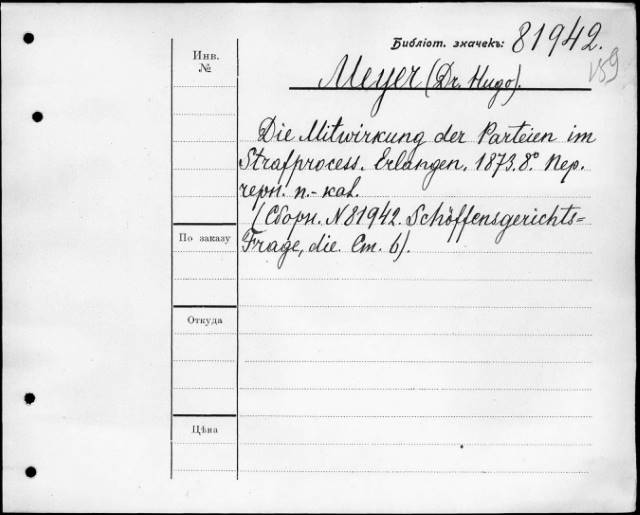 Библіот. значекъ: 81942.
159
Инв.
№
Meyer (Dr. Hugo).
Die Mitwirkung der Parteien im
Strafprocess. Erlangen. 1873. 8° Пер.
черн. п.-кал.
(Сборн. N 81942. Schöffensgerichts=
Frage, die. Ст. 6).
По заказу
Откуда
Цѣна